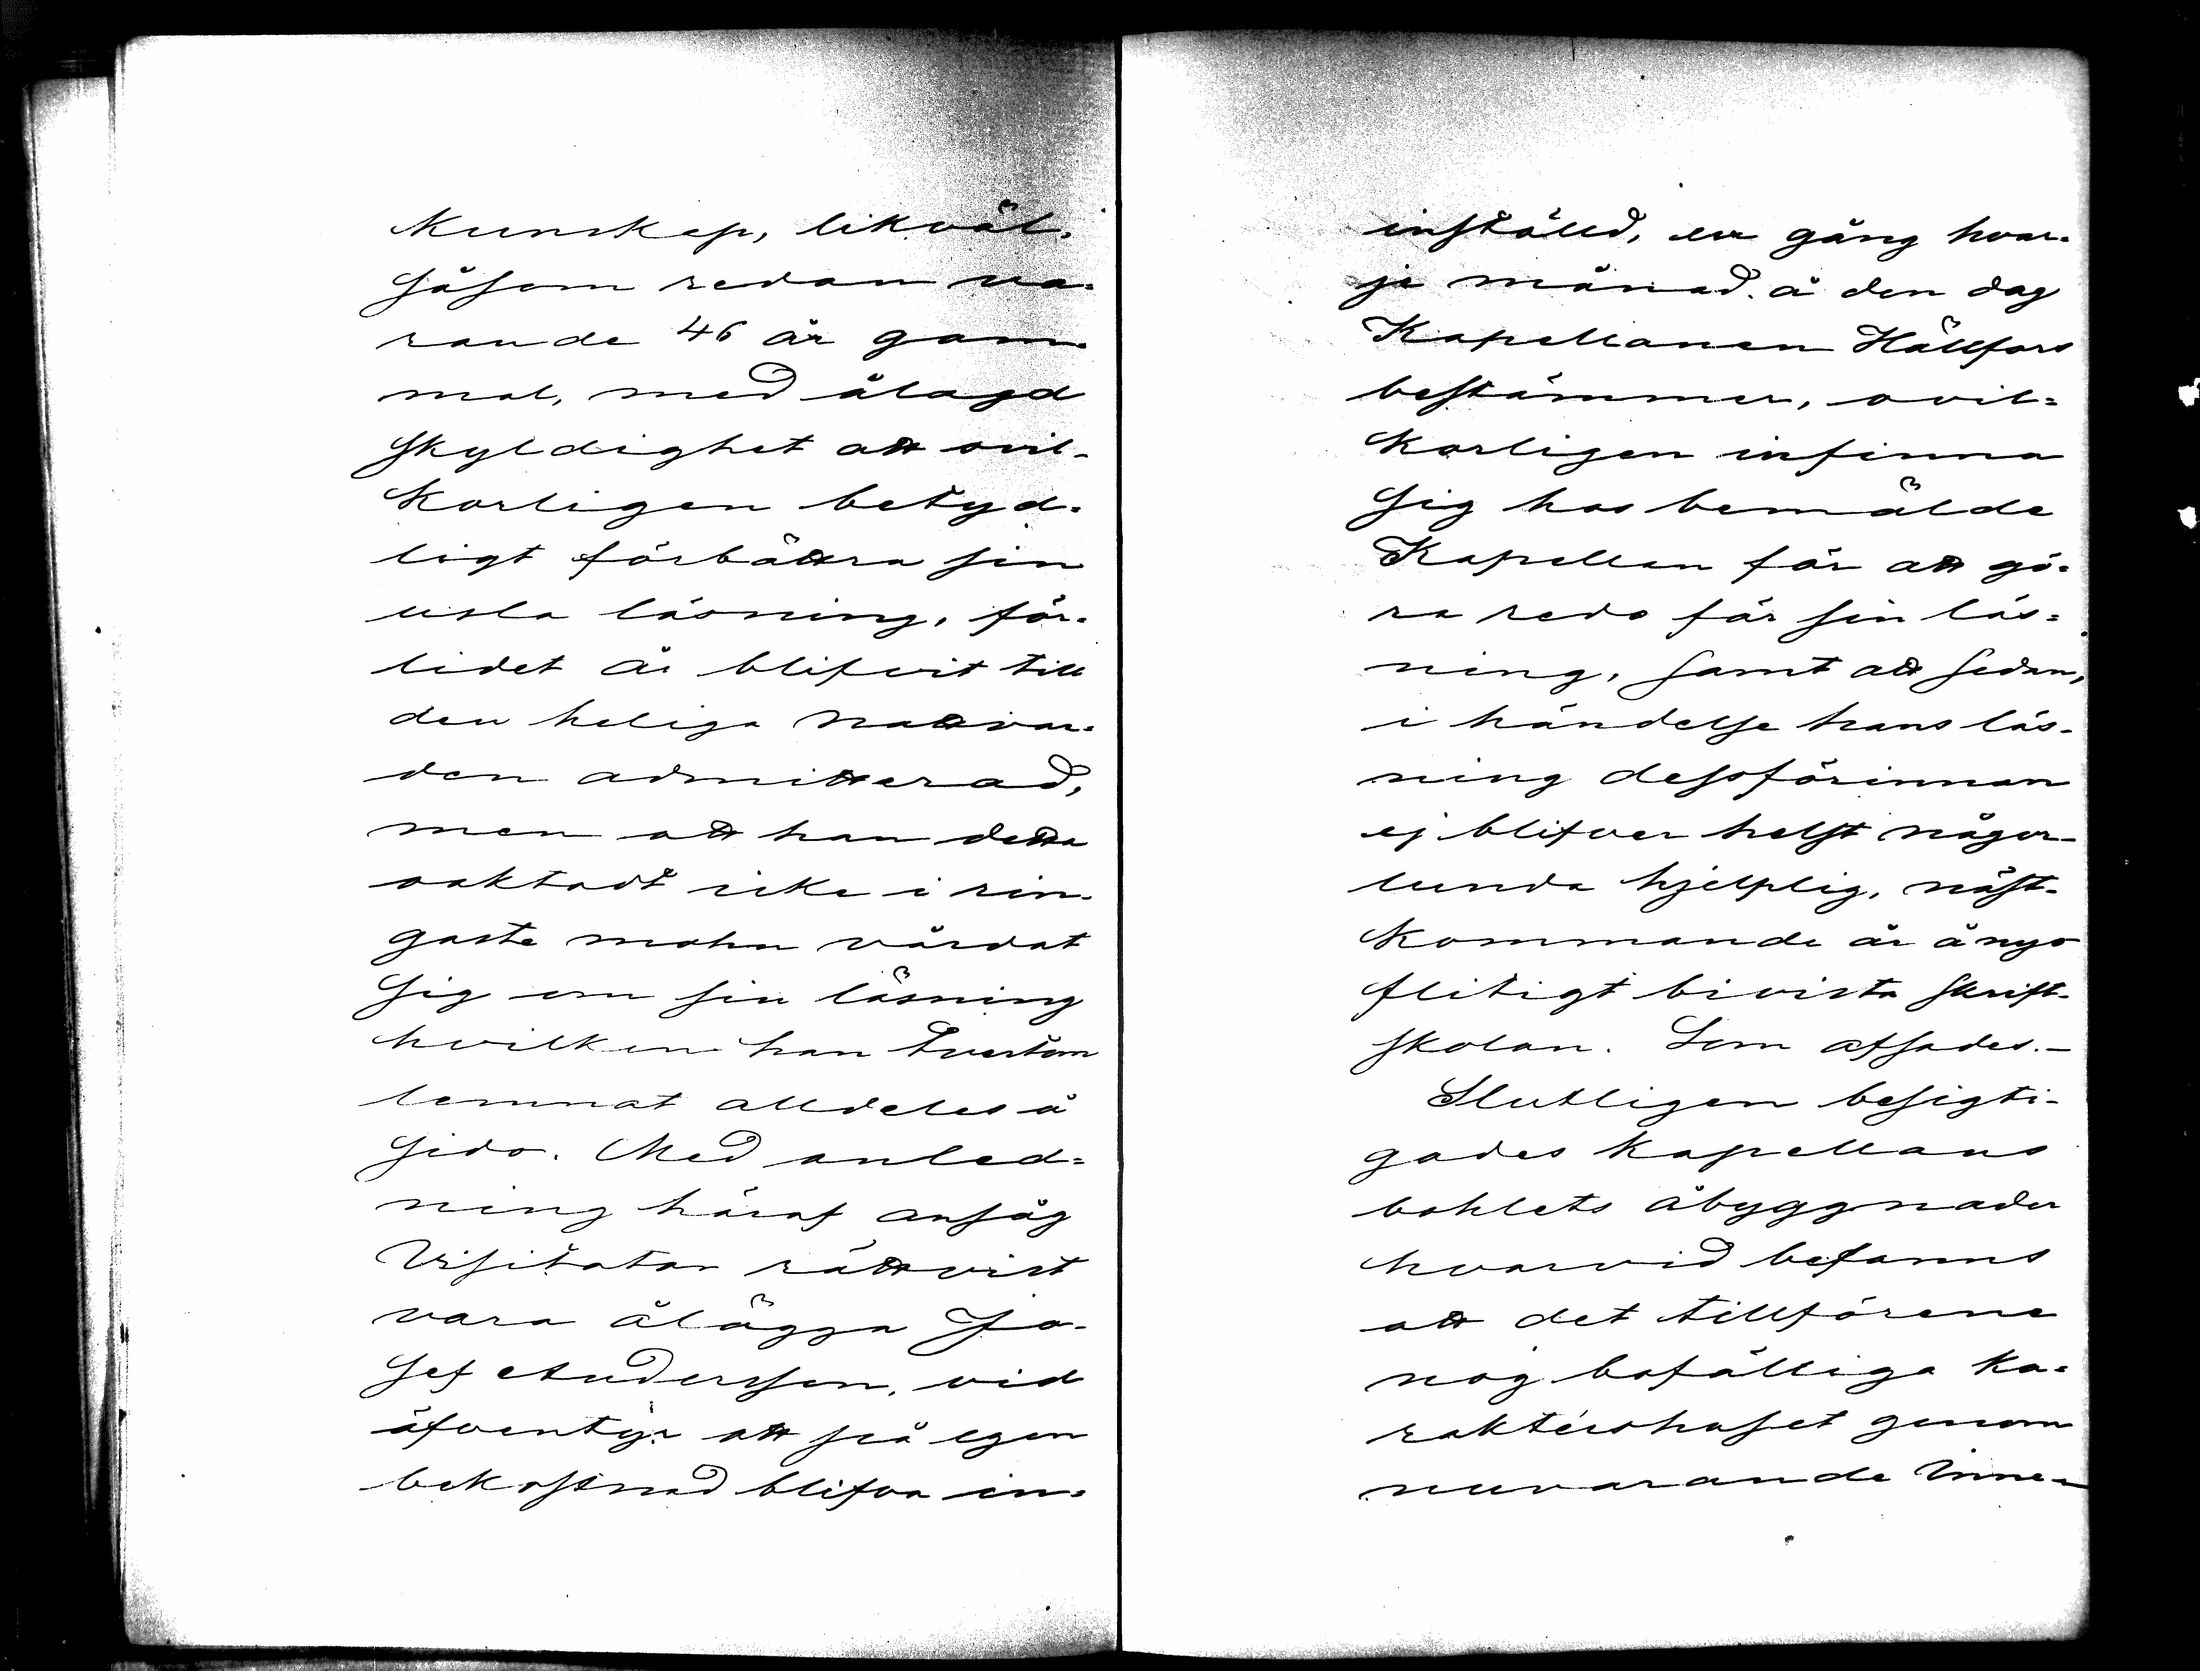 Kunskap, likväl,
såsom redan va-
rande 46 år gam-
mal, med ålagd
skyldighet att ovil-
korligen betyd-
ligt förbättra sin
usla läsning, för-
lidet år blifvit till
den heliga nattvar-
den admitterad,
men att han detta
oaktadt icke i rin-
gaste mohn vårdat
sig om sin läsning
hvilken han tvertom
lemnat alldeles å
sido. Med anled-
ning häraf ansåg
Visitator rättvist
vara ålägga Jo-
sef Andersson, vid
äfventyr att på egen
bekostnad blifva in-
inställd, en gång hvar-
je månad å den dag
Kapellanen Hällfors
bestämmer, ovil-
korligen infinna
sig hos bemälde
Kapellan för att gö-
ra redo för sin läs-
ning, samt att sedan,
i händelse hans läs-
ning dessförinnan
ej blifver helst någor-
lunda hjelplig, näst-
kommande år ånyo
flitigt bivista skrift-
skolan. Som afsades.—
Slutligen besigti-
gades Kapellans
bohlets åbyggnader
hvarvid befanns
att det tillförene
nog bofälliga Ka-
raktershuset genom
nuvarande Inne-